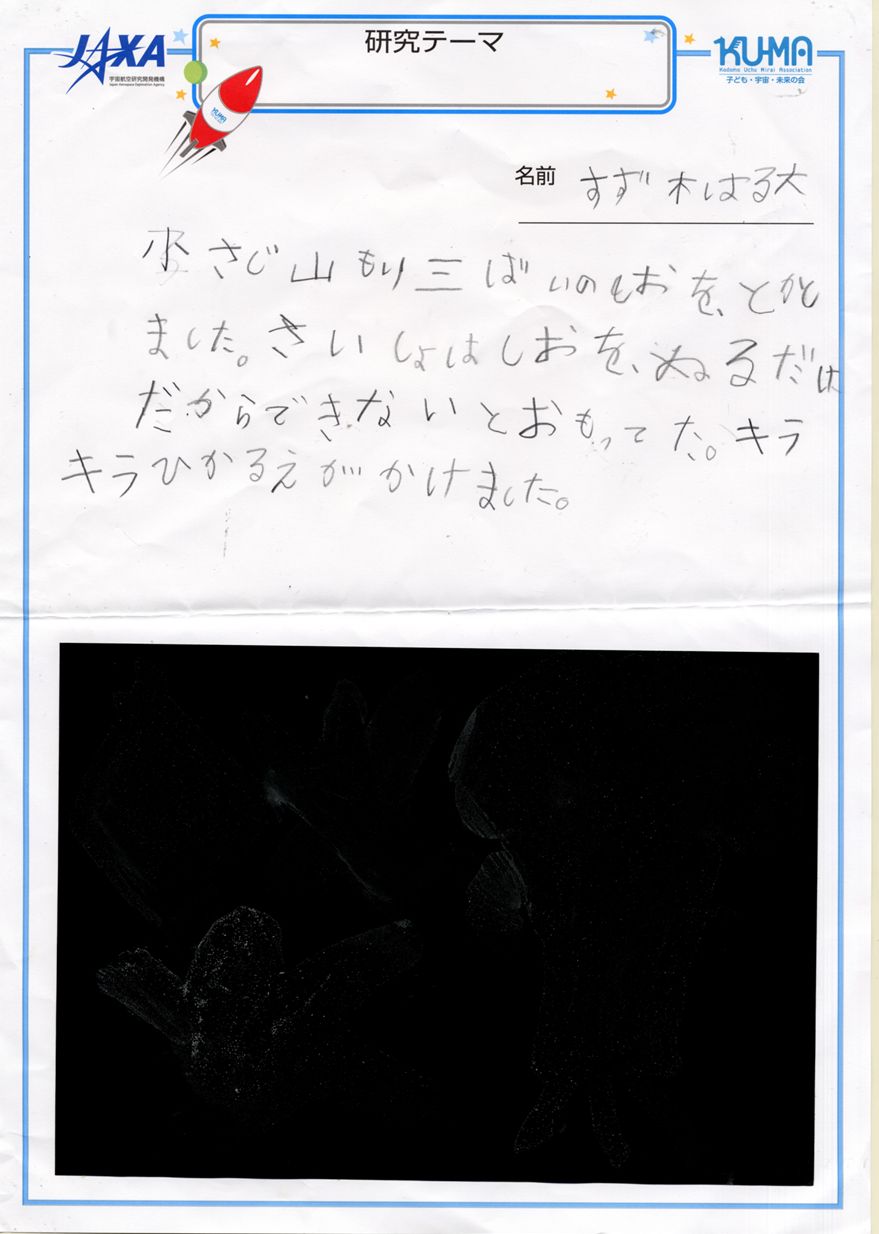 JAXA
宇宙航空研究開発機構
Japan Aerospace Exploration Agency
研究テーマ
KU-MA
Kodomo Uchu Mirai Association
子ども・宇宙・未来の会
KU-MA
名前 すず木はる大
小さじ山もり三ばいのしおを、とかし
ました。さいしょはしおを、ぬるだけ
だからできないとおもってた。キラ
キラひかるえがかけました。